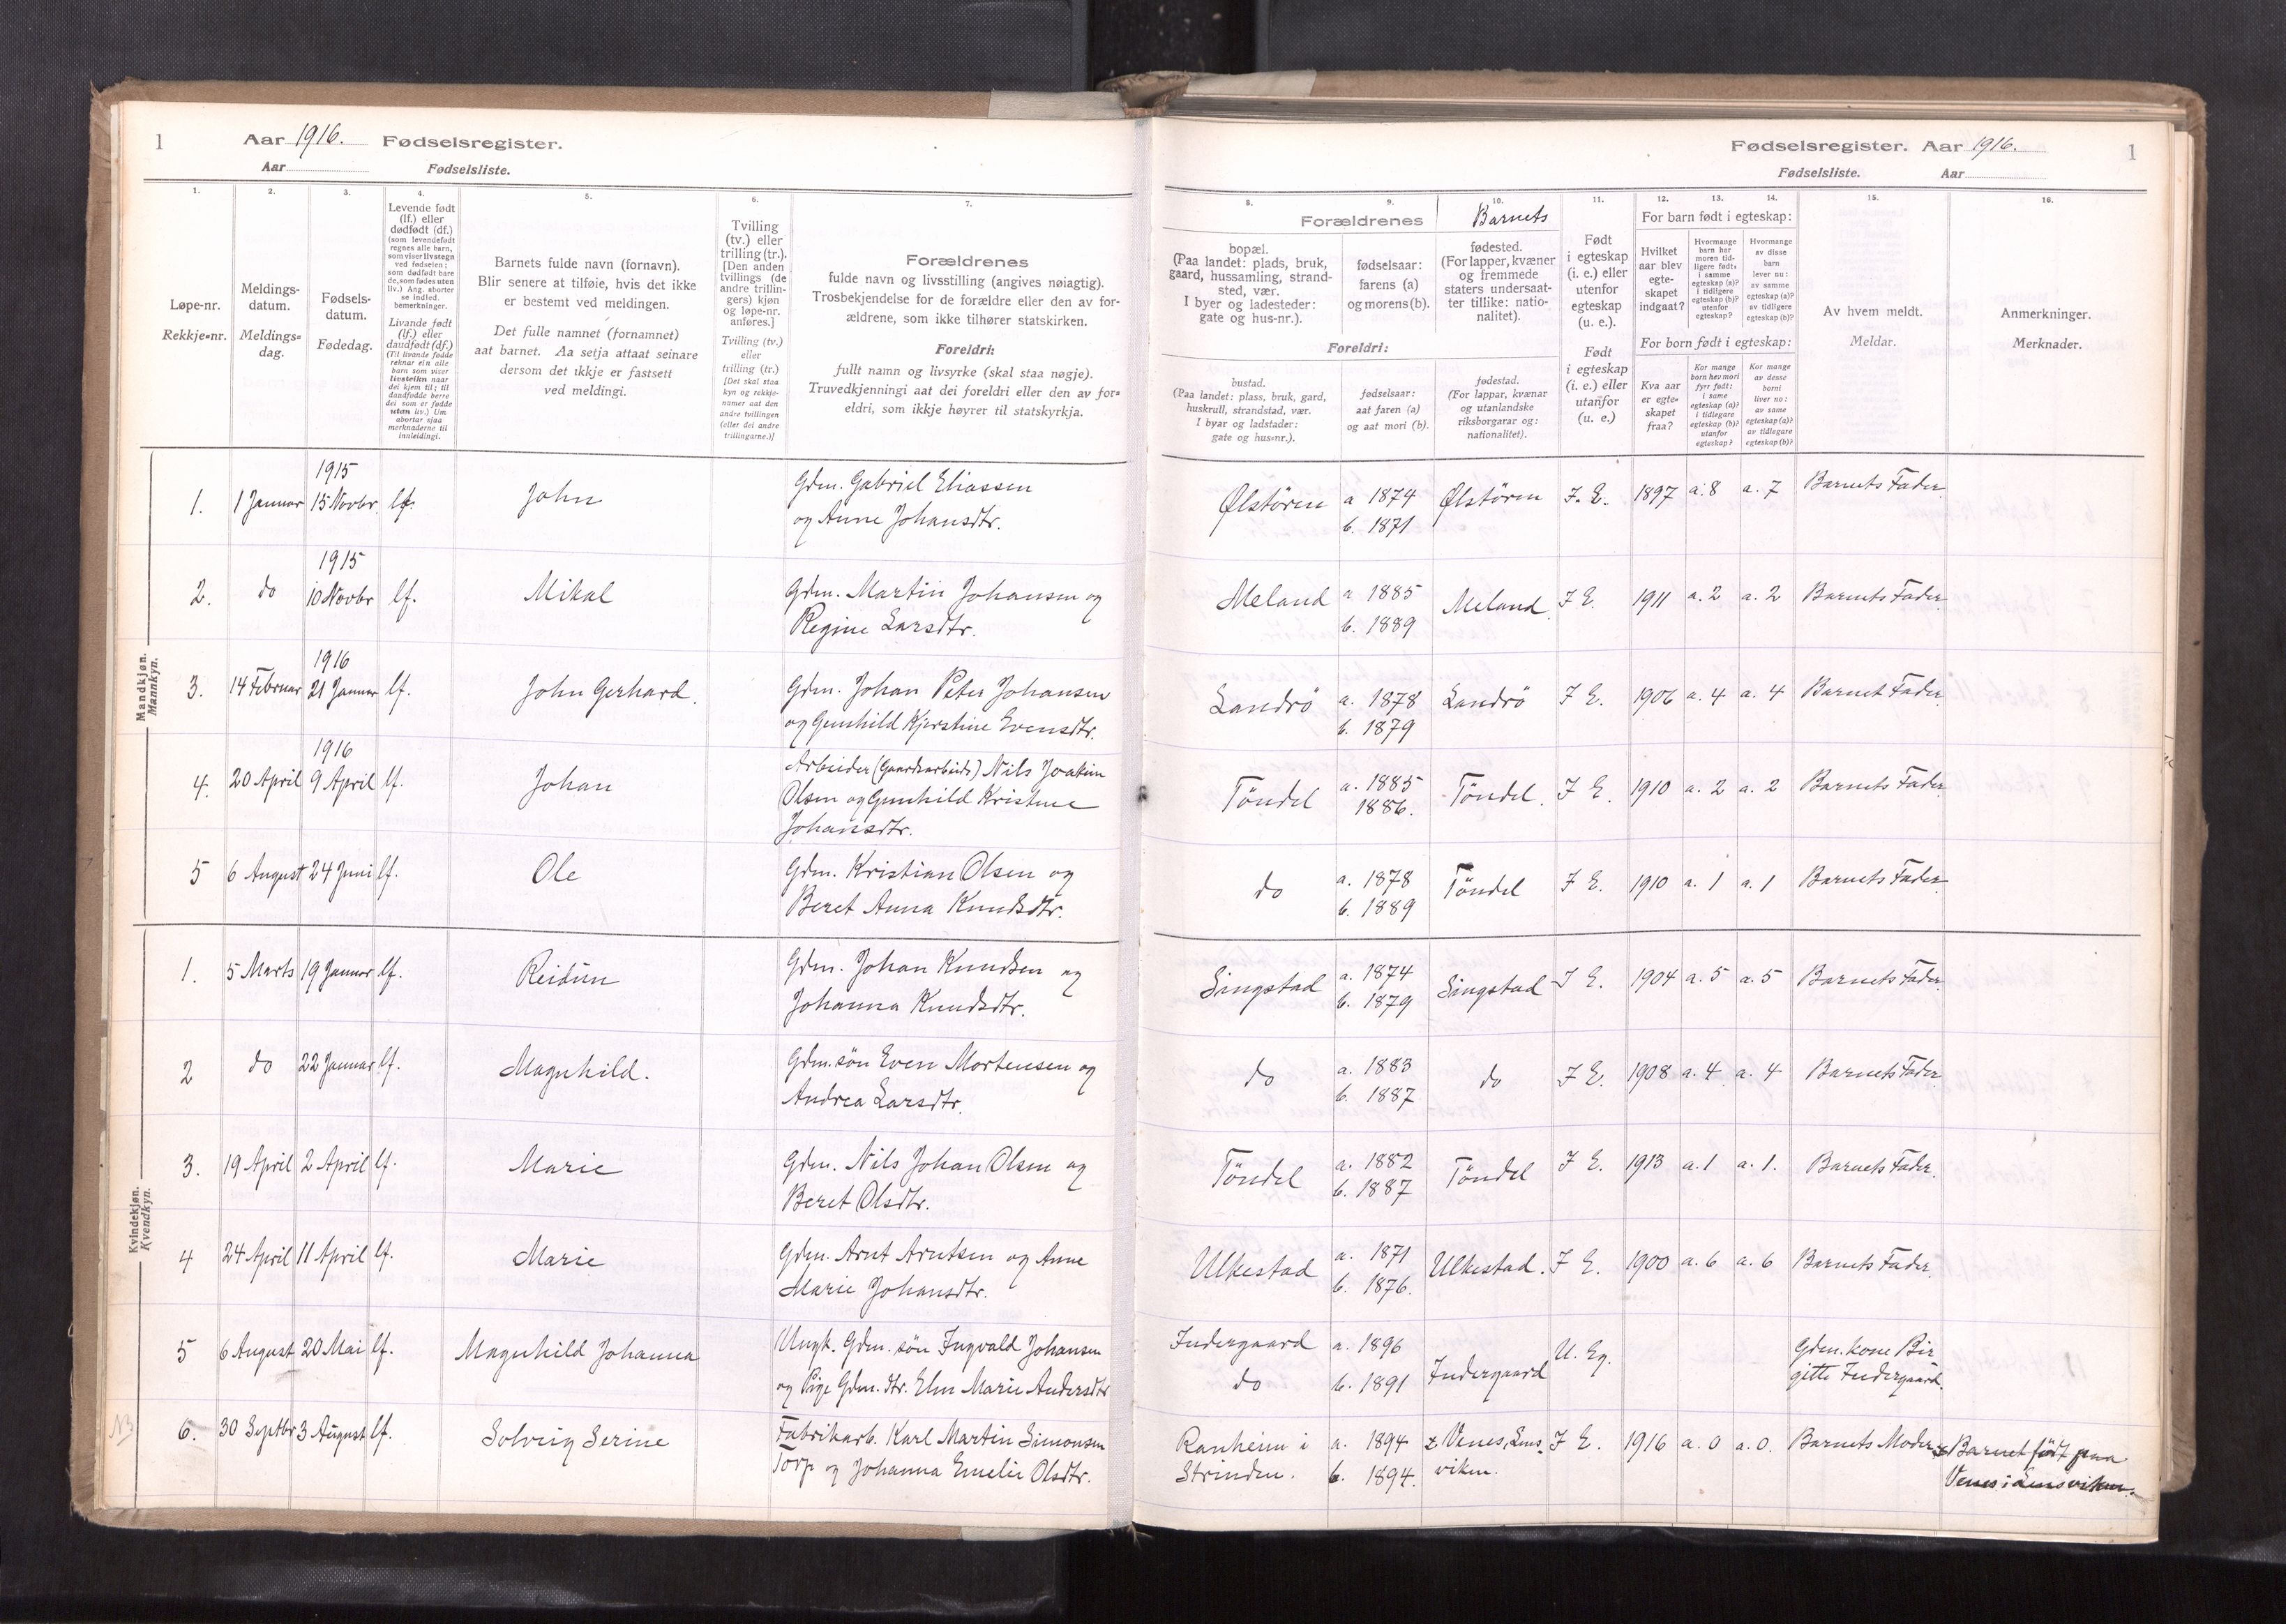 1 Aar 1916. Fødselsregister.
Aar Fødselsliste.
1. 2. 3. 4. 5. 6. 7.
Løpe-nr.
Rekkje=nr.
Meldings-
datum.
Meldings=
dag.
Fødsels-
datum.
Fødedag.
Levende født
(lf.) eller
dødfødt (df.)
(som levendefødt
regnes alle barn,
som viser livstegn
ved fødselen;
som dødfødt bare
de, som fødes uten
liv.) Ang. aborter
se indled.
bemerkninger.
Livande født
(lf.) eller
daudfødt (df.)
(Til livande fødde
reknar ein alle
barn som viser
livsteikn naar
dei kjem til; til
daudfødde berre
dei som er fødde
utan liv.) Um
abortar sjaa
merknaderne til
innleidingi.
Barnets fulde navn (fornavn).
Blir senere at tilføie, hvis det ikke
er bestemt ved meldingen.
Det fulle namnet (fornamnet)
aat barnet. Aa setja attaat seinare
dersom det ikkje er fastsett
ved meldingi.
Tvilling
(tv.) eller
trilling (tr.).
[Den anden
tvillings (de
andre trillin-
gers) kjøn
og løpe-nr.
anføres.]
Tvilling (tv.)
eller
trilling (tr.)
[Det skal staa
kyn og rekkje-
numer aat den
andre tvillingen
(eller dei andre
trillingarne.)]
Forældrenes
fulde navn og livsstilling (angives nøiagtig).
Trosbekjendelse for de forældre eller den av for-
ældrene, som ikke tilhører statskirken.
Foreldri:
fullt namn og livsyrke (skal staa nøgje).
Truvedkjenningi aat dei foreldri eller den av for=
eldri, som ikkje høyrer til statskyrkja.
Mandkjøn.
Mannkyn.
1915
1. 1 Januar 15 Novbr. lf. John Gdm. Gabriel Eliassen
og Anne Johansdtr.
1915
2. do 10 Novbr lf. Mikal Gdm. Martin Johansen og
Regine Larsdtr.
1916
3. 14 Februar 21 Januar lf. John Gerhard. Gdm. Johan Peter Johansen
og Gunhild Kjerstine Evensdtr.
1916
4. 20 April 9 April lf. Johan Arbeider (Gaardsarbeid.) Nils Joakim
Olsen og Gunhild Kristine
Johansdtr.
5 6 August 24 Juni lf. Ole Gdm. Kristian Olsen og
Beret Anna Knudsdtr.
Kvindekjøn.
Kvendkyn.
1. 5 Marts 19 Januar lf. Reidun Gdm. Johan Knudsen og
Johanna Knudsdtr.
2 do 22 Januar lf. Magnhild. Gdm. søn Even Mortensen og
Andrea Larsdtr.
3. 19 April 2 April lf. Marie Gdm. Nils Johan Olsen og
Beret Olsdtr.
4 24 April 11 April lf. Marie Gdm. Arnt Arntsen og Anne
Marie Johansdtr.
5 6 August 20 Mai lf. Magnhild Johanna Ungk. Gdm. søn Ingvald Johansen
og Pige Gdm. dtr. Elen Marie Andersdtr
6. 30 Septbr 3 August lf. Solveig Serine Fabrikarb. Karl Martin Simonsen
Torp og Johanna Emelie Olsdtr.
Fødselsregister. Aar 1916. 1
Fødselsliste. Aar
8. 9. 10. 11. 12. 13. 14. 15. 16.
Forældrenes
Barnets
bopæl.
(Paa landet: plads, bruk,
gaard, hussamling, strand-
sted, vær.
I byer og ladesteder:
gate og hus-nr.).
fødselsaar:
farens (a)
og morens (b).
fødested.
(For lapper, kvæner
og fremmede
staters undersaat-
ter tillike: natio-
nalitet).
Foreldri:
bustad.
(Paa landet: plass, bruk, gard,
huskrull, strandstad, vær.
I byar og ladstader:
gate og hus=nr.).
fødselsaar:
aat faren (a)
og aat mori (b).
fødestad.
(For lappar, kvænar
og utanlandske
riksborgarar og:
nationalitet).
Født
i egteskap
(i. e.) eller
utenfor
egteskap
(u. e.).
Født
i egteskap
(i. e.) eller
utanfor
(u. e.)
For barn født i egteskap:
Hvilket
aar blev
egte-
skapet
indgaat?
Hvormange
barn har
moren tid-
ligere født:
i samme
egteskap (a)?
i tidligere
egteskap (b)?
utenfor
egteskap?
Hvormange
av disse
barn
lever nu:
av samme
egteskap (a)?
av tidligere
egteskap (b)?
For born født i egteskap:
Kva aar
er egte=
skapet
fraa?
Kor mange
born hev mori
fyrr født:
i same
egteskap (a)?
i tidlegare
egteskap (b)?
utanfor
egteskap?
Kor mange
av desse
borni
liver no:
av same
egteskap (a)?
av tidlegare
egteskap (b)?
Av hvem meldt.
Meldar.
Anmerkninger.
Merknader.
Ølstören a 1874 Ølstören I. E. 1897 a. 8 a. 7 Barnets Fader.
b. 1871
Meland a 1885 Meland. I E. 1911 a. 2 a. 2 Barnets Fader.
b. 1889
Landrö a. 1878 Landrö I E. 1906 a. 4 a. 4 Barnet Fader.
b. 1879
Töndel a. 1885 Töndel. I E. 1910 a. 2 a. 2 Barnets Fader.
1886.
do a. 1878 Töndel I E. 1910 a. 1 a. 1 Barnets Fader.
b. 1889
Singstad a. 1874 Singstad I E. 1904 a. 5 a. 5 Barnets Fader.
b. 1879
do a. 1883 do I E. 1908 a. 4 a. 4 Barnets Fader.
b. 1887
Töndel a. 1882 Töndel I E. 1913 a. 1 a. 1. Barnets Fader.
b. 1887
Ulkestad a. 1871 Ulkestad. I E. 1900 a. 6 a. 6 Barnets Fader.
b. 1876.
Indergaard a. 1896 Indergaard U. Eg. Gdm. kone Bir
do b. 1891 gitte Indergaard.
Ranheim i a. 1894 x Venes, Lens- I E. 1916 a. 0 a. 0. Barnets Moder x Barnet födt paa
Strinden. b. 1894. viken. Venes i Lensviken.